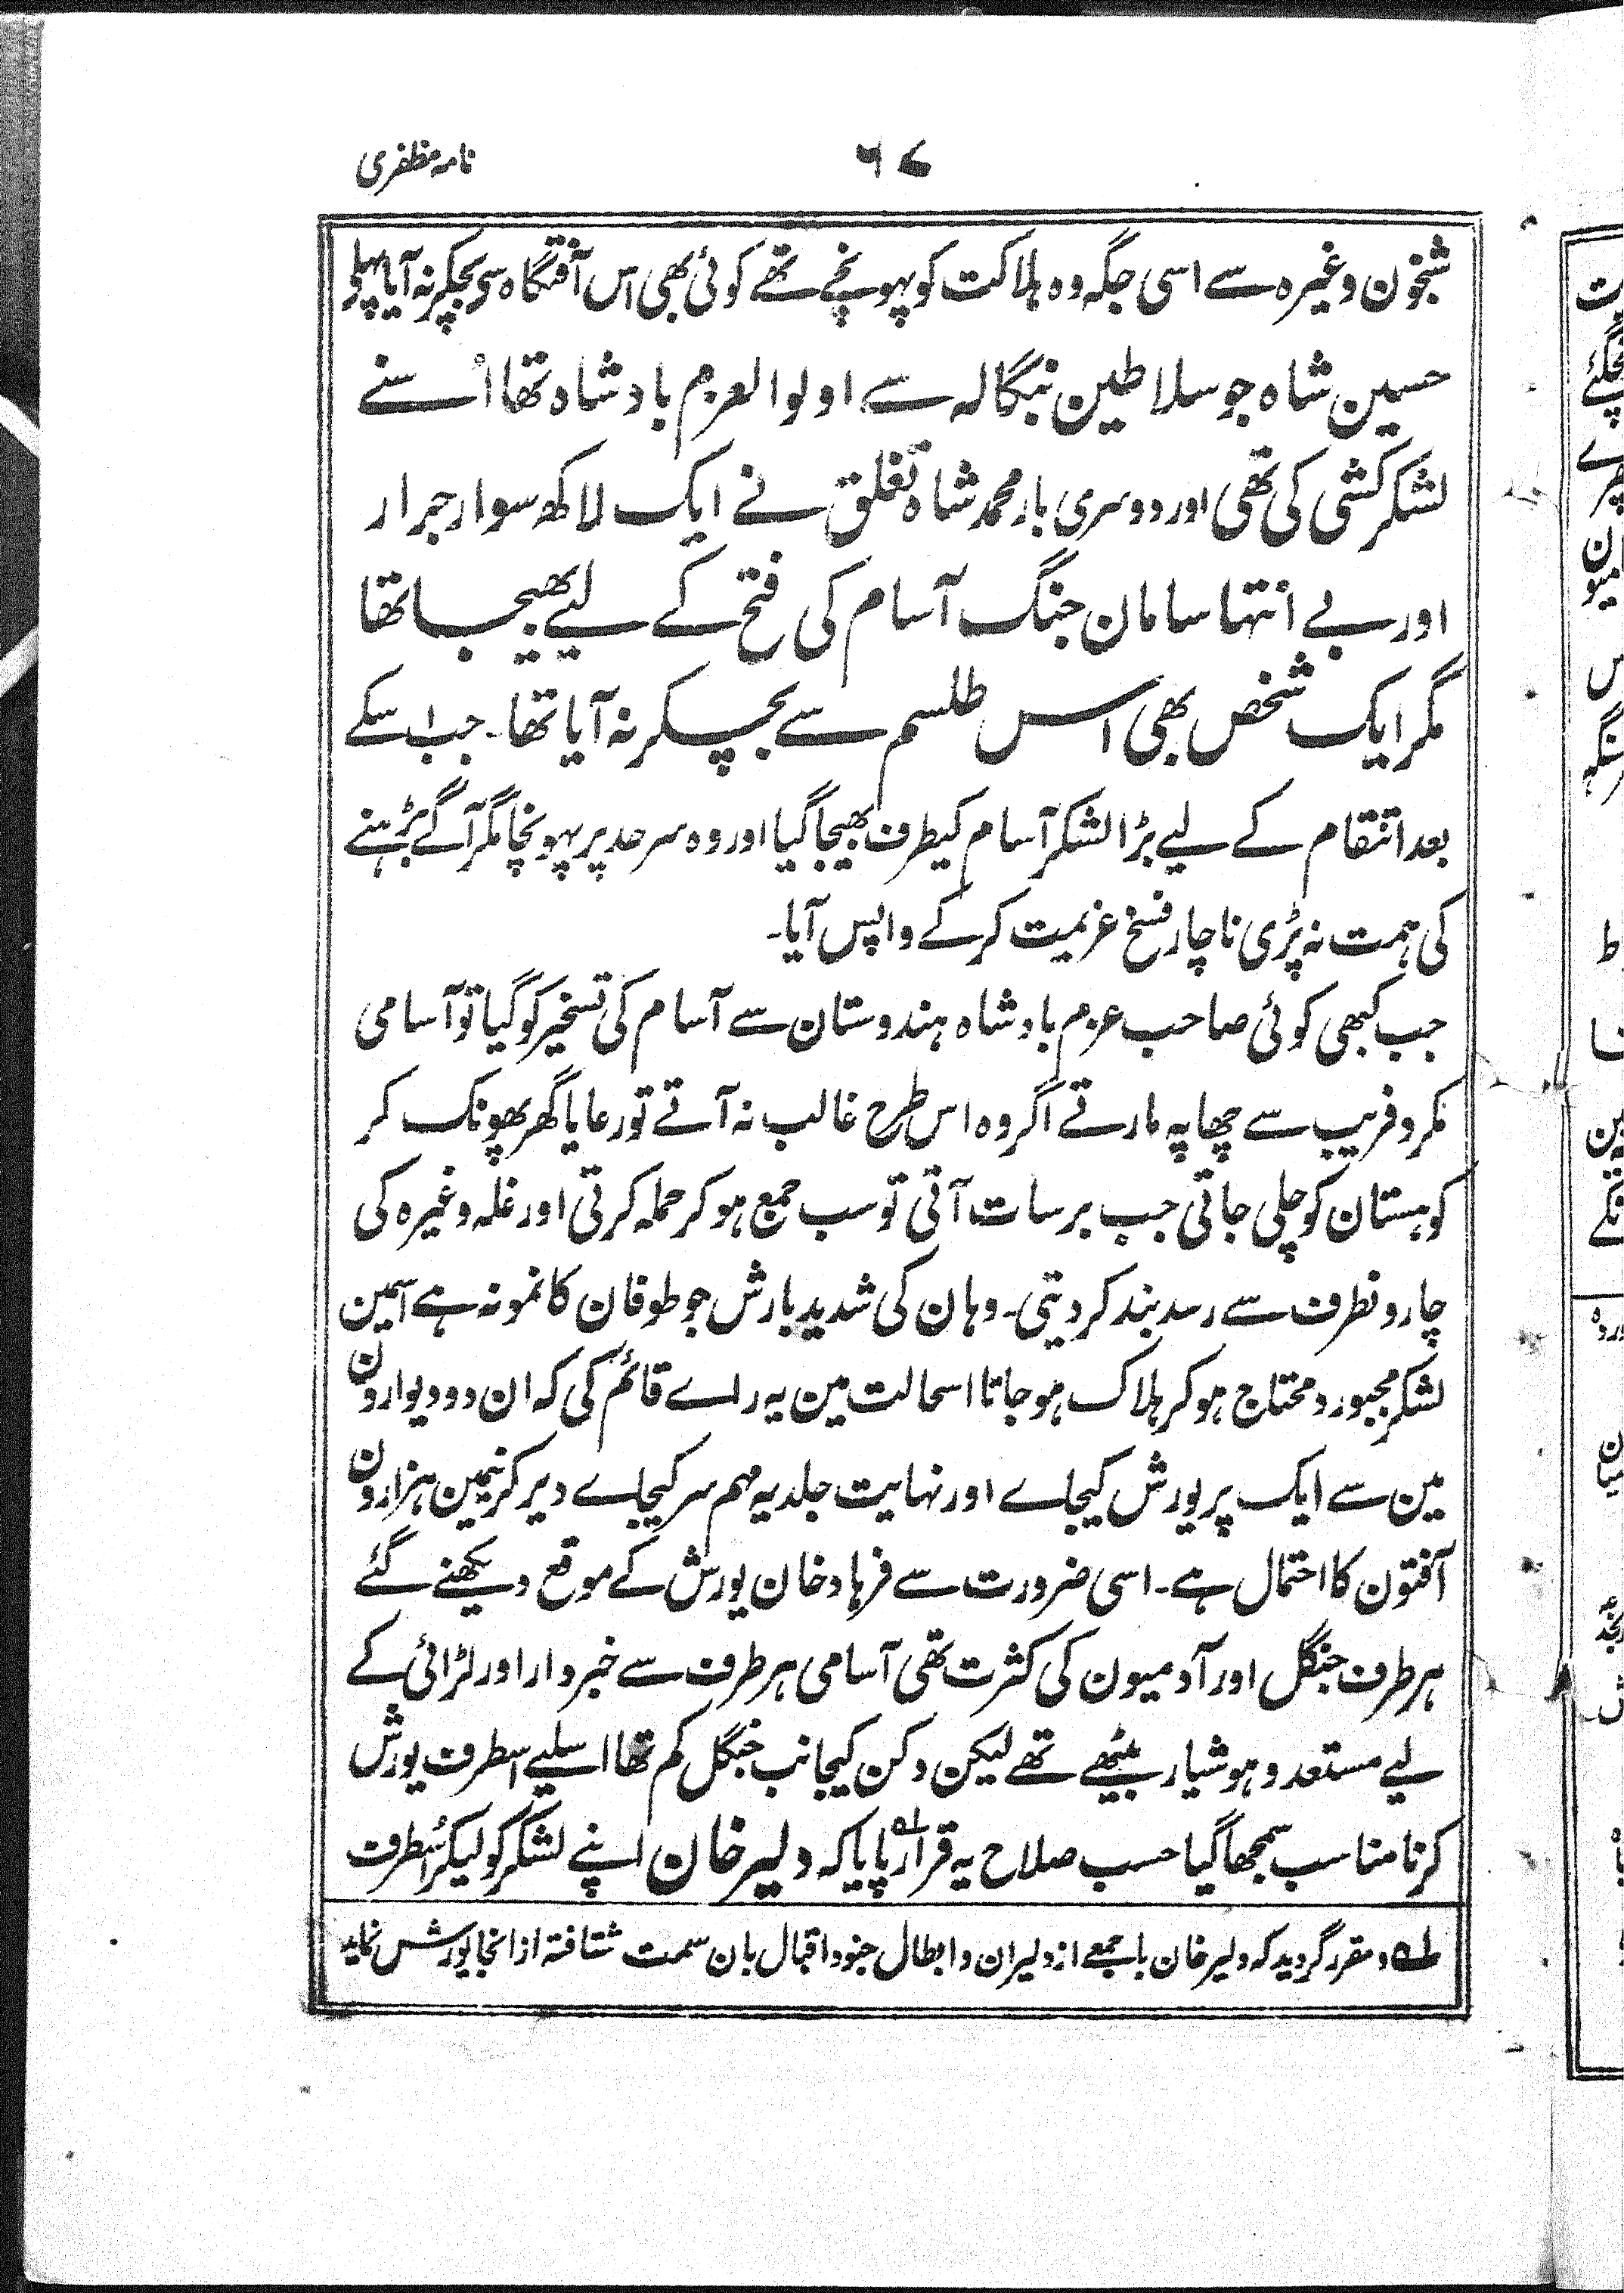 نامہ مظفری
۶۷
شبخون وغیرہ سے اسی جگہ وہ ہلاکت کو پہونچے تھے کوئی بھی اس آفتگاہ سے بچکر نہ آیا پہلے
حسین شاہ جو سلاطین بنگالہ سے اولوالعزم بادشاہ تھا اُسنے
لشکر کشی کی تھی اور دوسری بار محمد شاہ تغلق نے ایک لاکھ سوار جرار
اور بے انتہا سامان جنگ آسام کی فتح کے لیے بھیجا تھا
مگر ایک شخص بھی اس طلسم سے بچکر نہ آیا تھا۔ جب اسکے
بعد انتقام کے لیے بڑا لشکر آسام کیطرف بھیجا گیا اور وہ سرحد پر پہونچا مگر آگے بڑہنے
کی ہمت نہ پڑی ناچار فسخ عزیمت کرکے واپس آیا۔
جب کبھی کوئی صاحب عزم بادشاہ ہندوستان سے آسام کی تسخیر کو گیا تو آسامی
مکر و فریب سے چھاپہ مارتے اگر وہ اس طرح غالب نہ آتے تو رعایا گھر پھونک کر
کوہستان کو چلی جاتی جب برسات آتی تو سب جمع ہو کر حملہ کرتی اور غلہ وغیرہ کی
چارونطرف سے رسد بند کر دیتی۔ وہان کی شدید بارش جو طوفان کا نمونہ ہے اسمین
لشکر مجبور و محتاج ہو کر ہلاک ہو جاتا اسحالت مین یہ راے قائم کی کہ ان دو دیوارون
مین سے ایک پر یورش کیجاے اور نہایت جلد یہ مہم سر کیجاے دیر کرنیمین ہزارون
آفتون کا احتمال ہے۔ اسی ضرورت سے فرہاد خان یورش کے موقع دیکھنے گئے
ہر طرف جنگل اور آدمیون کی کثرت تھی آسامی ہر طرف سے خبردار اور لڑائی کے
لیے مستعد و ہوشیار بیٹھے تھے لیکن دکن کیجانب جنگل کم تھا اسلیے اسطرف یورش
کرنا مناسب سمجھا گیا حسب صلاح یہ قرار پایا کہ دلیر خان اپنے لشکر کو لیکر اُسطرف
لہ و مقرر گردید کہ دلیر خان با جمعے از دلیران و ابطال جنود اقبال بان سمت شتافتہ از انجا یورش نماید